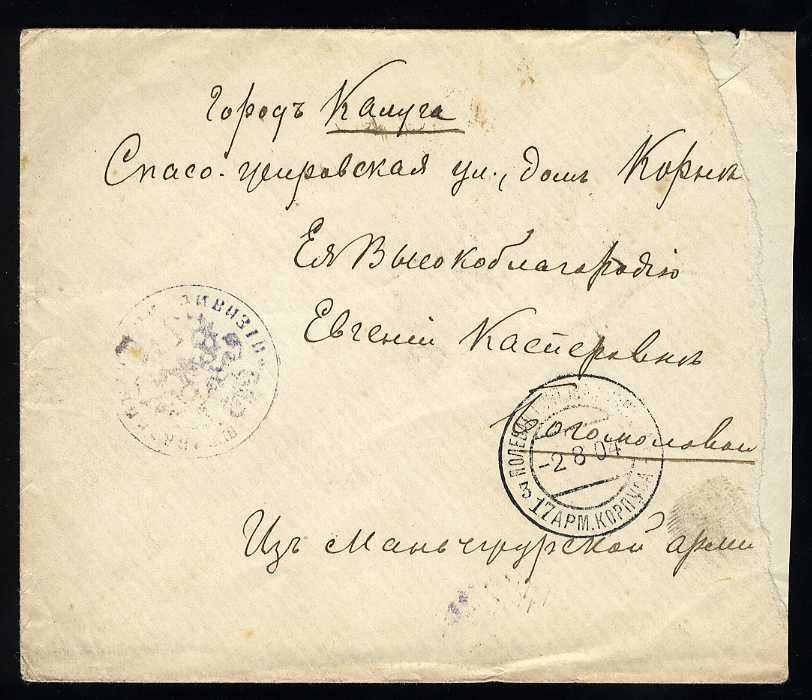 Городъ Калуга
Спасо-Жировская ул., домъ Корнил
Ея Высокоблагородію
Евгеніи Касперовнѣ
Богомоловой
Изъ Маньчжурской арміи
ПОЛЕВ
-2 8 04
17 АРМ. КОРПУСА
ДИВИЗІИ